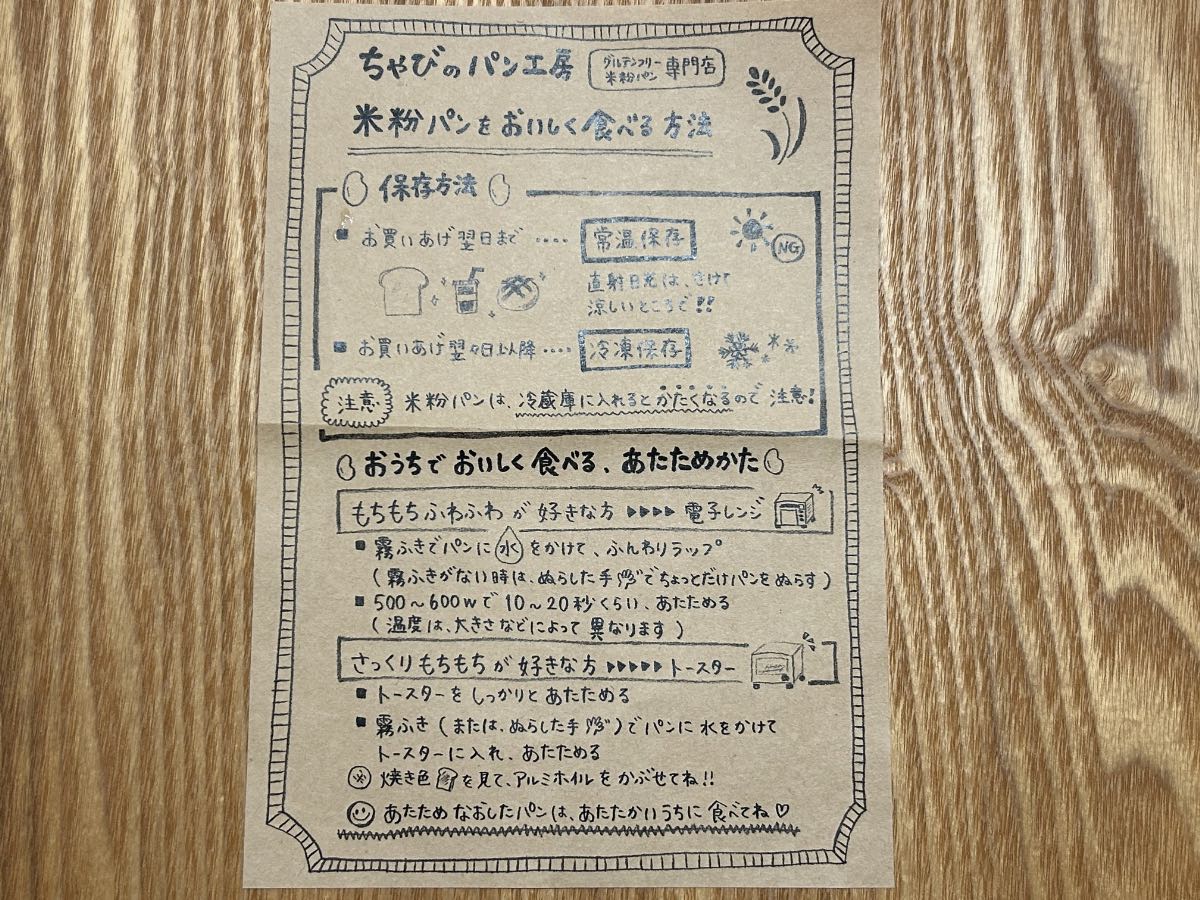 ちゃびのパン工房
グルテンフリー
米粉パン 専門店
米粉パンをおいしく食べる方法
保存方法
お買いあげ翌日まで‥‥ 常温保存
NG
直射日光は、さけて
涼しいところで!!
お買いあげ翌々日以降‥‥ 冷凍保存
注意 米粉パンは、冷蔵庫に入れるとかたくなるので 注意!
おうちでおいしく食べる、あたためかた
もちもちふわふわが好きな方 ▶▶▶▶ 電子レンジ
霧ふきでパンに水をかけて、ふんわりラップ
(霧ふきがない時は、ぬらした手でちょっとだけパンをぬらす)
500～600wで10～20秒くらい、あたためる
(温度は、大きさなどによって異なります)
さっくりもちもちが好きな方 ▶▶▶▶▶ トースター
トースターをしっかりとあたためる
霧ふき(または、ぬらした手)でパンに水をかけて
トースターに入れ、あたためる
焼き色を見て、アルミホイルをかぶせてね!!
あたためなおしたパンは、あたたかいうちに食べてね♡